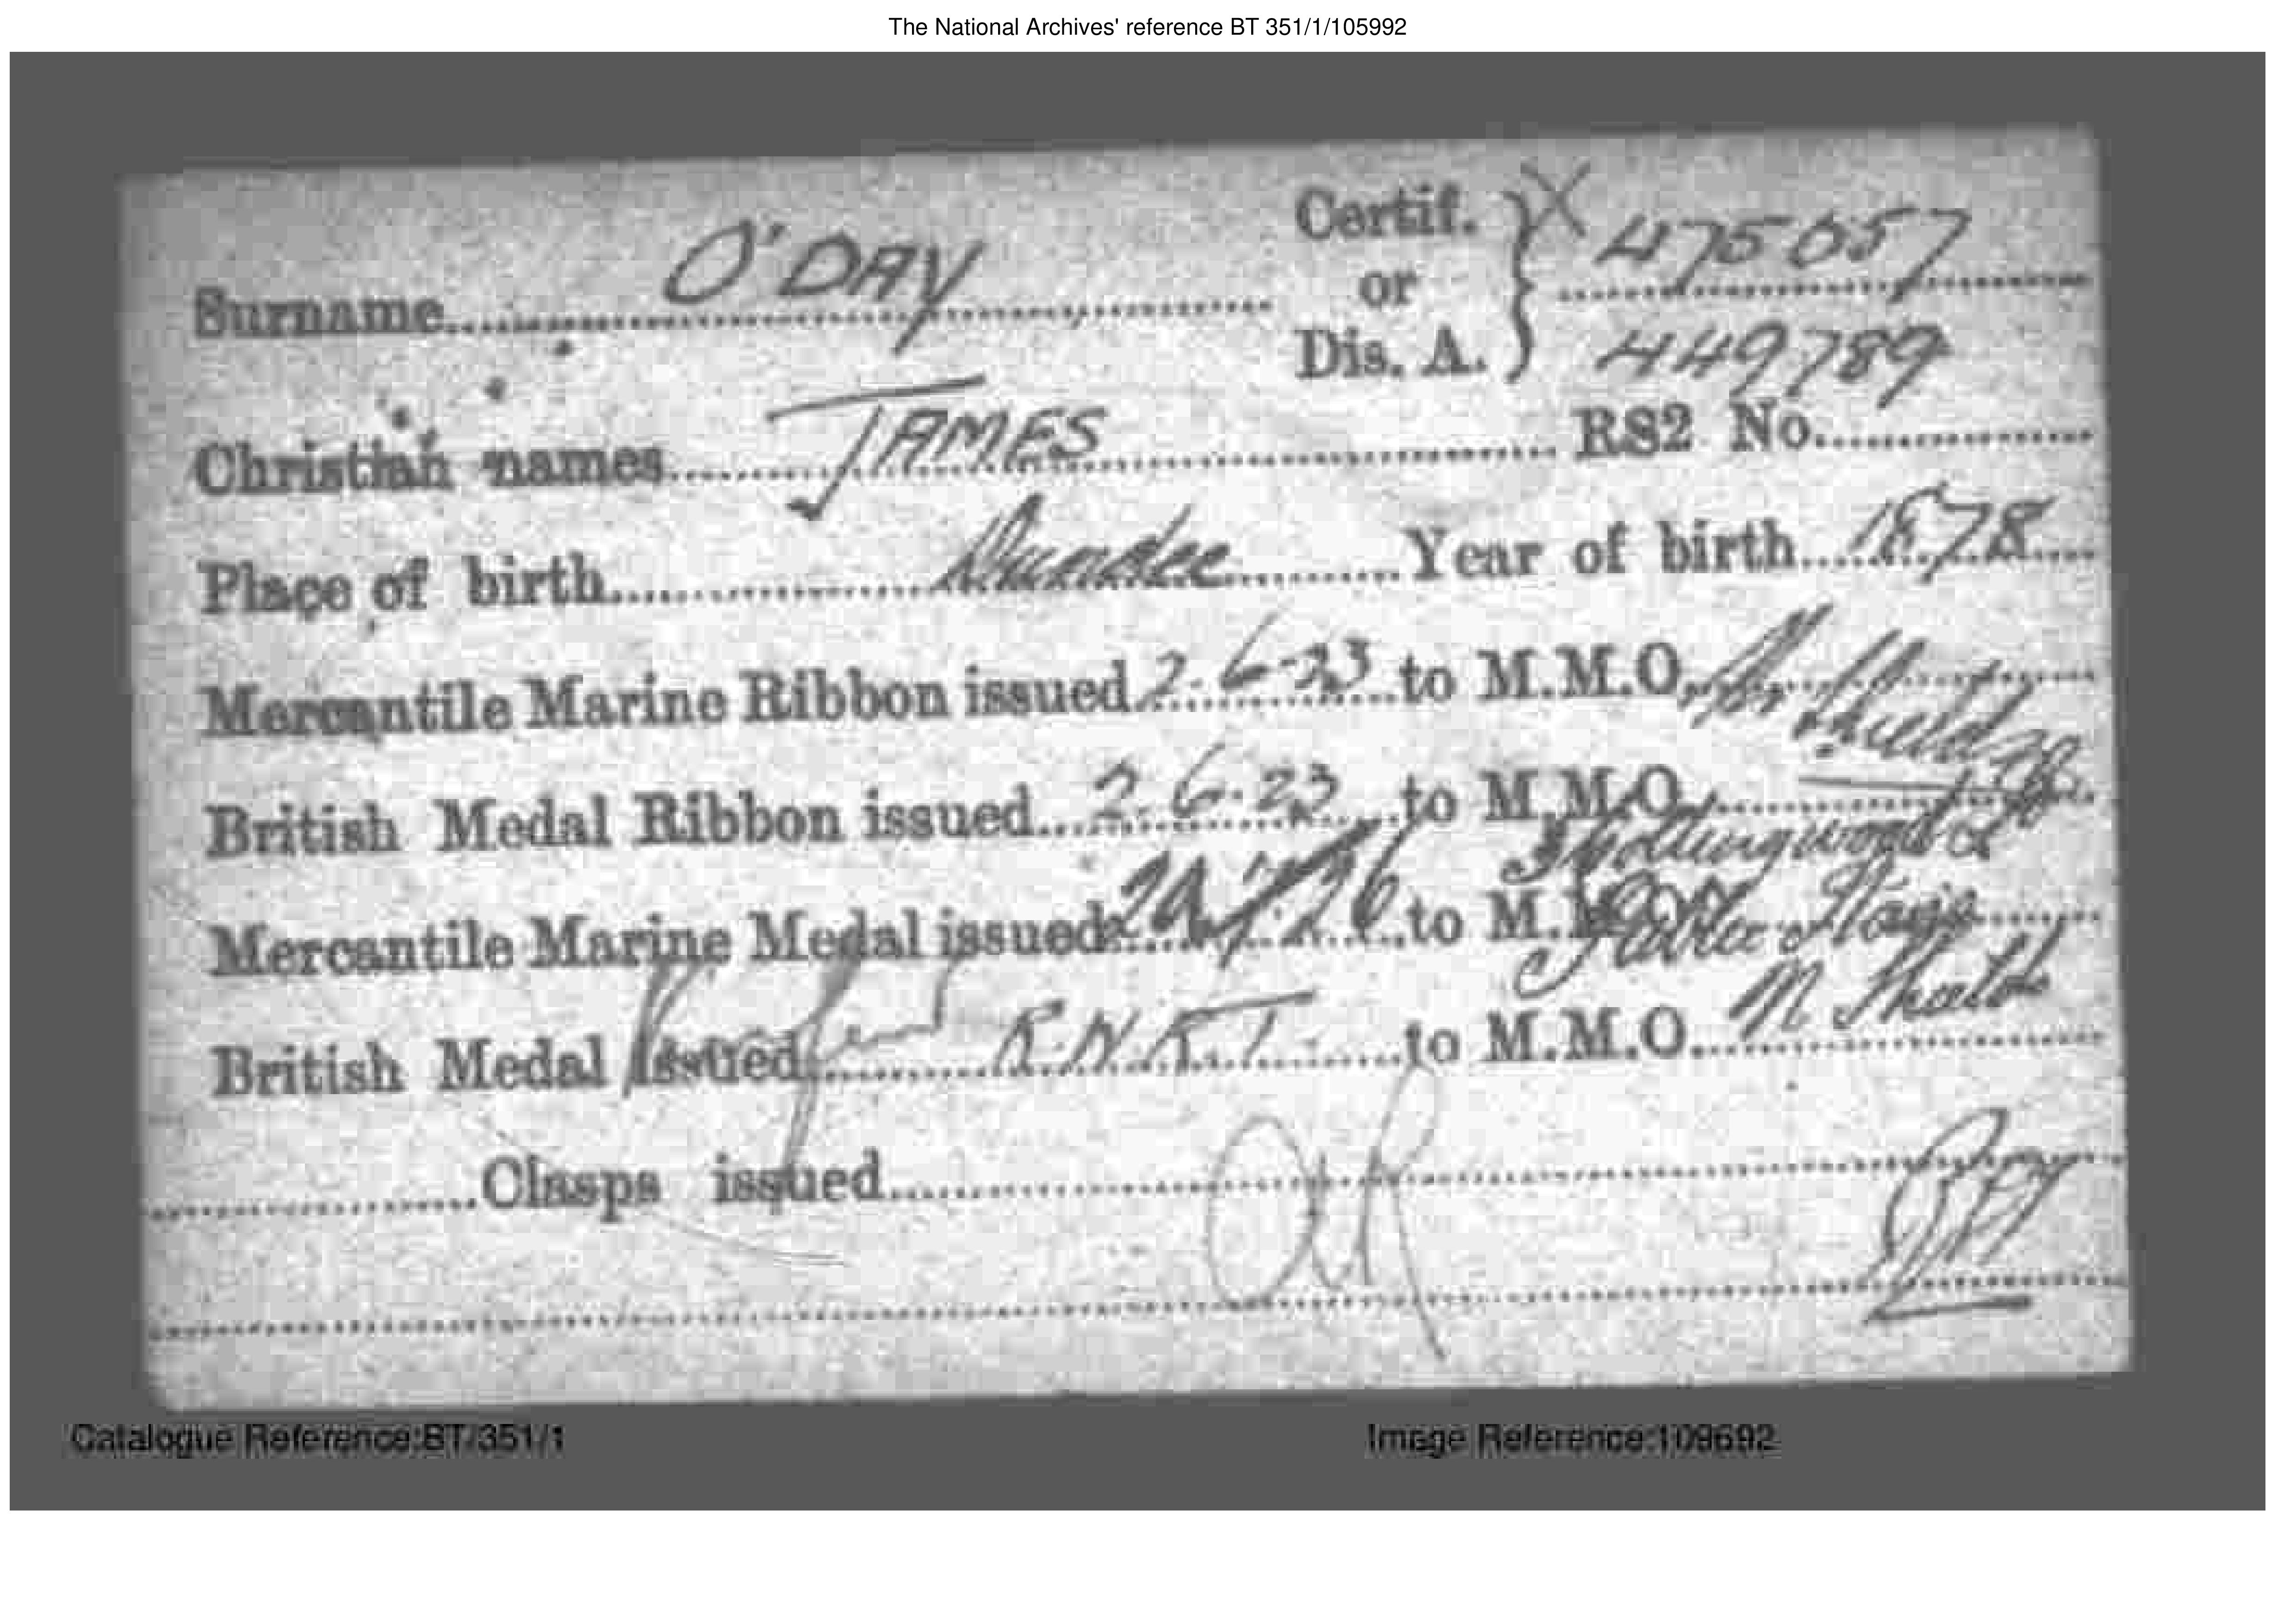 The National Archives' reference BT 351/1/105992
Surname O'DAY Certif. or Dis. A. } X 475057
449789
Christian names JAMES RS2 No.
Place of birth Dundee Year of birth 1878
Mercantile Marine Ribbon issued 2.6.23 to M.M.O. N. Shields
British Medal Ribbon issued 2.6.23 to M.M.O.
Hollingwood St
Mercantile Marine Medal issued to M.M.O.
N. Shields
British Medal issued R.N.R.T. to M.M.O.
Clasps issued
Catalogue Reference:BT/351/1 Image Reference:109692